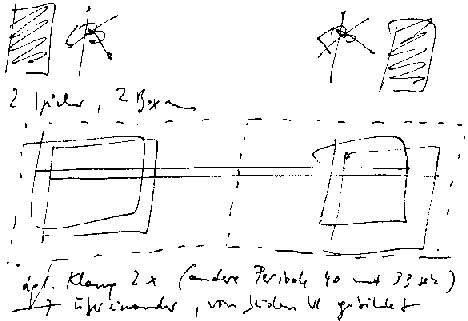 2 Spieler, 2 Boxen
Klang 2x (andere Periode 40 und 33 sek)
übereinander, von beiden gebildet